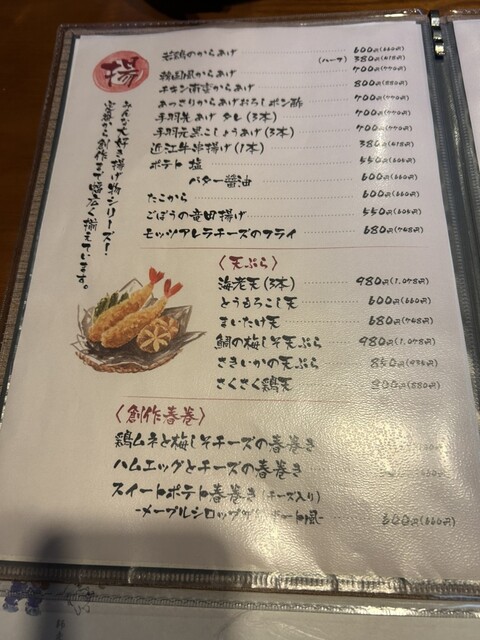 揚
みんな大好き揚げ物シリーズ！
定番から創作まで幅広く揃えています。
若鶏のからあげ 600円(660円)
(ハーフ) 380円(418円)
韓国風からあげ 700円(770円)
チキン南蛮からあげ 800円(880円)
あっさりからあげおろしポン酢 700円(770円)
手羽先あげ タレ(3本) 700円(770円)
手羽元黒こしょうあげ(3本) 700円(770円)
近江牛串揚げ(1本) 380円(418円)
ポテト 塩 550円(605円)
バター醤油 600円(660円)
たこから 600円(660円)
ごぼうの竜田揚げ 550円(605円)
モッツアレラチーズのフライ 680円(748円)
〈天ぷら〉
海老天(3本) 980円(1,078円)
とうもろこし天 600円(660円)
まいたけ天 680円(748円)
鯛の梅しそ天ぷら 980円(1,078円)
さきいかの天ぷら 850円(935円)
さくさく鶏天 800円(880円)
〈創作春巻〉
鶏ムネと梅しそチーズの春巻き
ハムエッグとチーズの春巻き
スイートポテト春巻き(チーズ入り)
-メープルシロップ 風- 600円(660円)